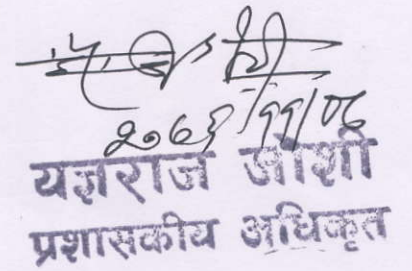 २०७३/११/०६
यज्ञराज जोशी
प्रशासकीय अधिकृत